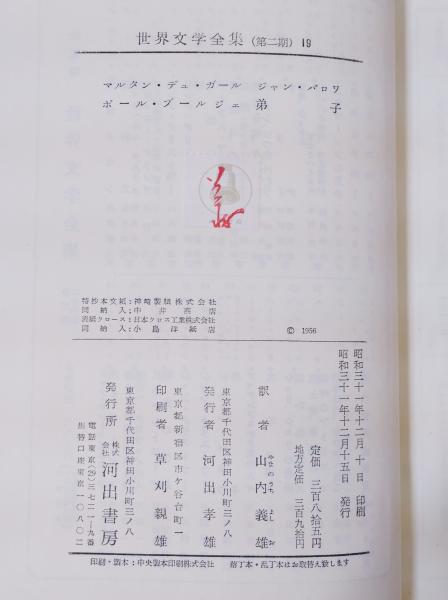 世界文学全集（第二期）19
マルタン・デュ・ガール　ジャン・バロワ
ポール・ブールジェ　弟子
特抄本文紙：神崎製紙株式会社
同納入：中井商店
表紙クロース：日本クロス工業株式会社
同納入：小島洋紙店
© 1956
昭和三十一年十二月十日　印刷
昭和三十一年十二月十五日　発行
定価　三百八拾五円
地方定価　三百九拾円
訳者　山内義雄
やまのうちよしお
東京都千代田区神田小川町三ノ八
発行者　河出孝雄
東京都新宿区市ケ谷台町一
印刷者　草刈親雄
東京都千代田区神田小川町三ノ八
発行所　株式会社　河出書房
電話東京(29)三七二一―九番
振替口座東京一〇八〇二
印刷・製本：中央製本印刷株式会社　落丁本・乱丁本はお取替え致します